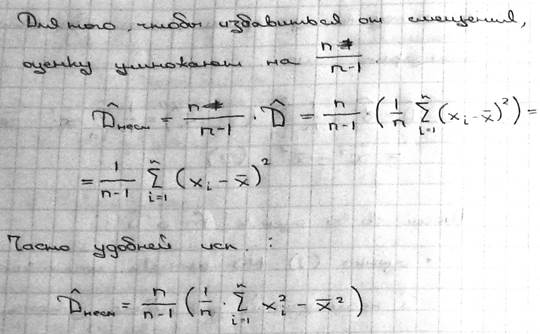 Для того, чтобы избавиться от смещения,
оценку умножают на n/(n-1).
D̂несм = n/(n-1) · D̂ = n/(n-1) · (1/n ∑ᵢ₌₁ⁿ (xᵢ - x̄)²) =
= 1/(n-1) ∑ᵢ₌₁ⁿ (xᵢ - x̄)²
Часто удобней исп. :
D̂несм = n/(n-1) (1/n · ∑ᵢ₌₁ⁿ xᵢ² - x̄²)